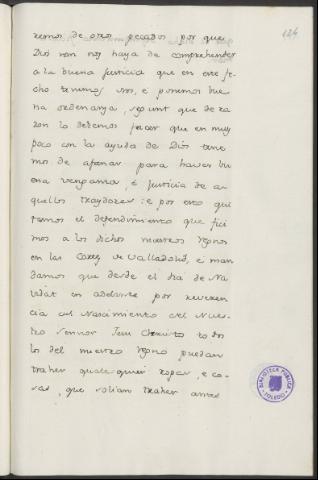 124
remos de otro pecados por que
Dios non nos haya de comprehender
a la buena justicia que en este fe-
cho tenemos nos, e ponemos bue
na ordenanza, segunt que de ra
zon lo debemos facer que en muy
poco con la ayuda de Dios tene
mos de afanar para haver bu
ena venganza, é justicia de a-
quellos traydores: e por esto qui
tamos el defendimiento que fici
mos a los dichos nuestros regnos
en las Cortes de Valladolid, é man
damos que desde el dia de Na
vidat en adelante por reveren
cia del Nascimiento del Nues-
tro Sennor Jesu Christo todos
los del nuestro regno puedan
traher qualesquier ropas, e co-
sas, que solian traher antes
BIBLIOTECA PUBLICA
TOLEDO